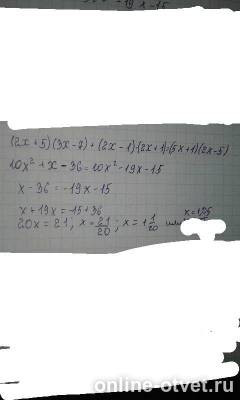 (2x + 5)(3x - 7) + (2x - 1)(2x + 1) = (5x + 1)(2x - 5)
10x² + x - 36 = 10x² - 19x - 15
x - 36 = -19x - 15
x + 19x = -15 + 36
20x = 21; x = 21/20; x = 1 1/20 или
x = 1,05
online-otvet.ru